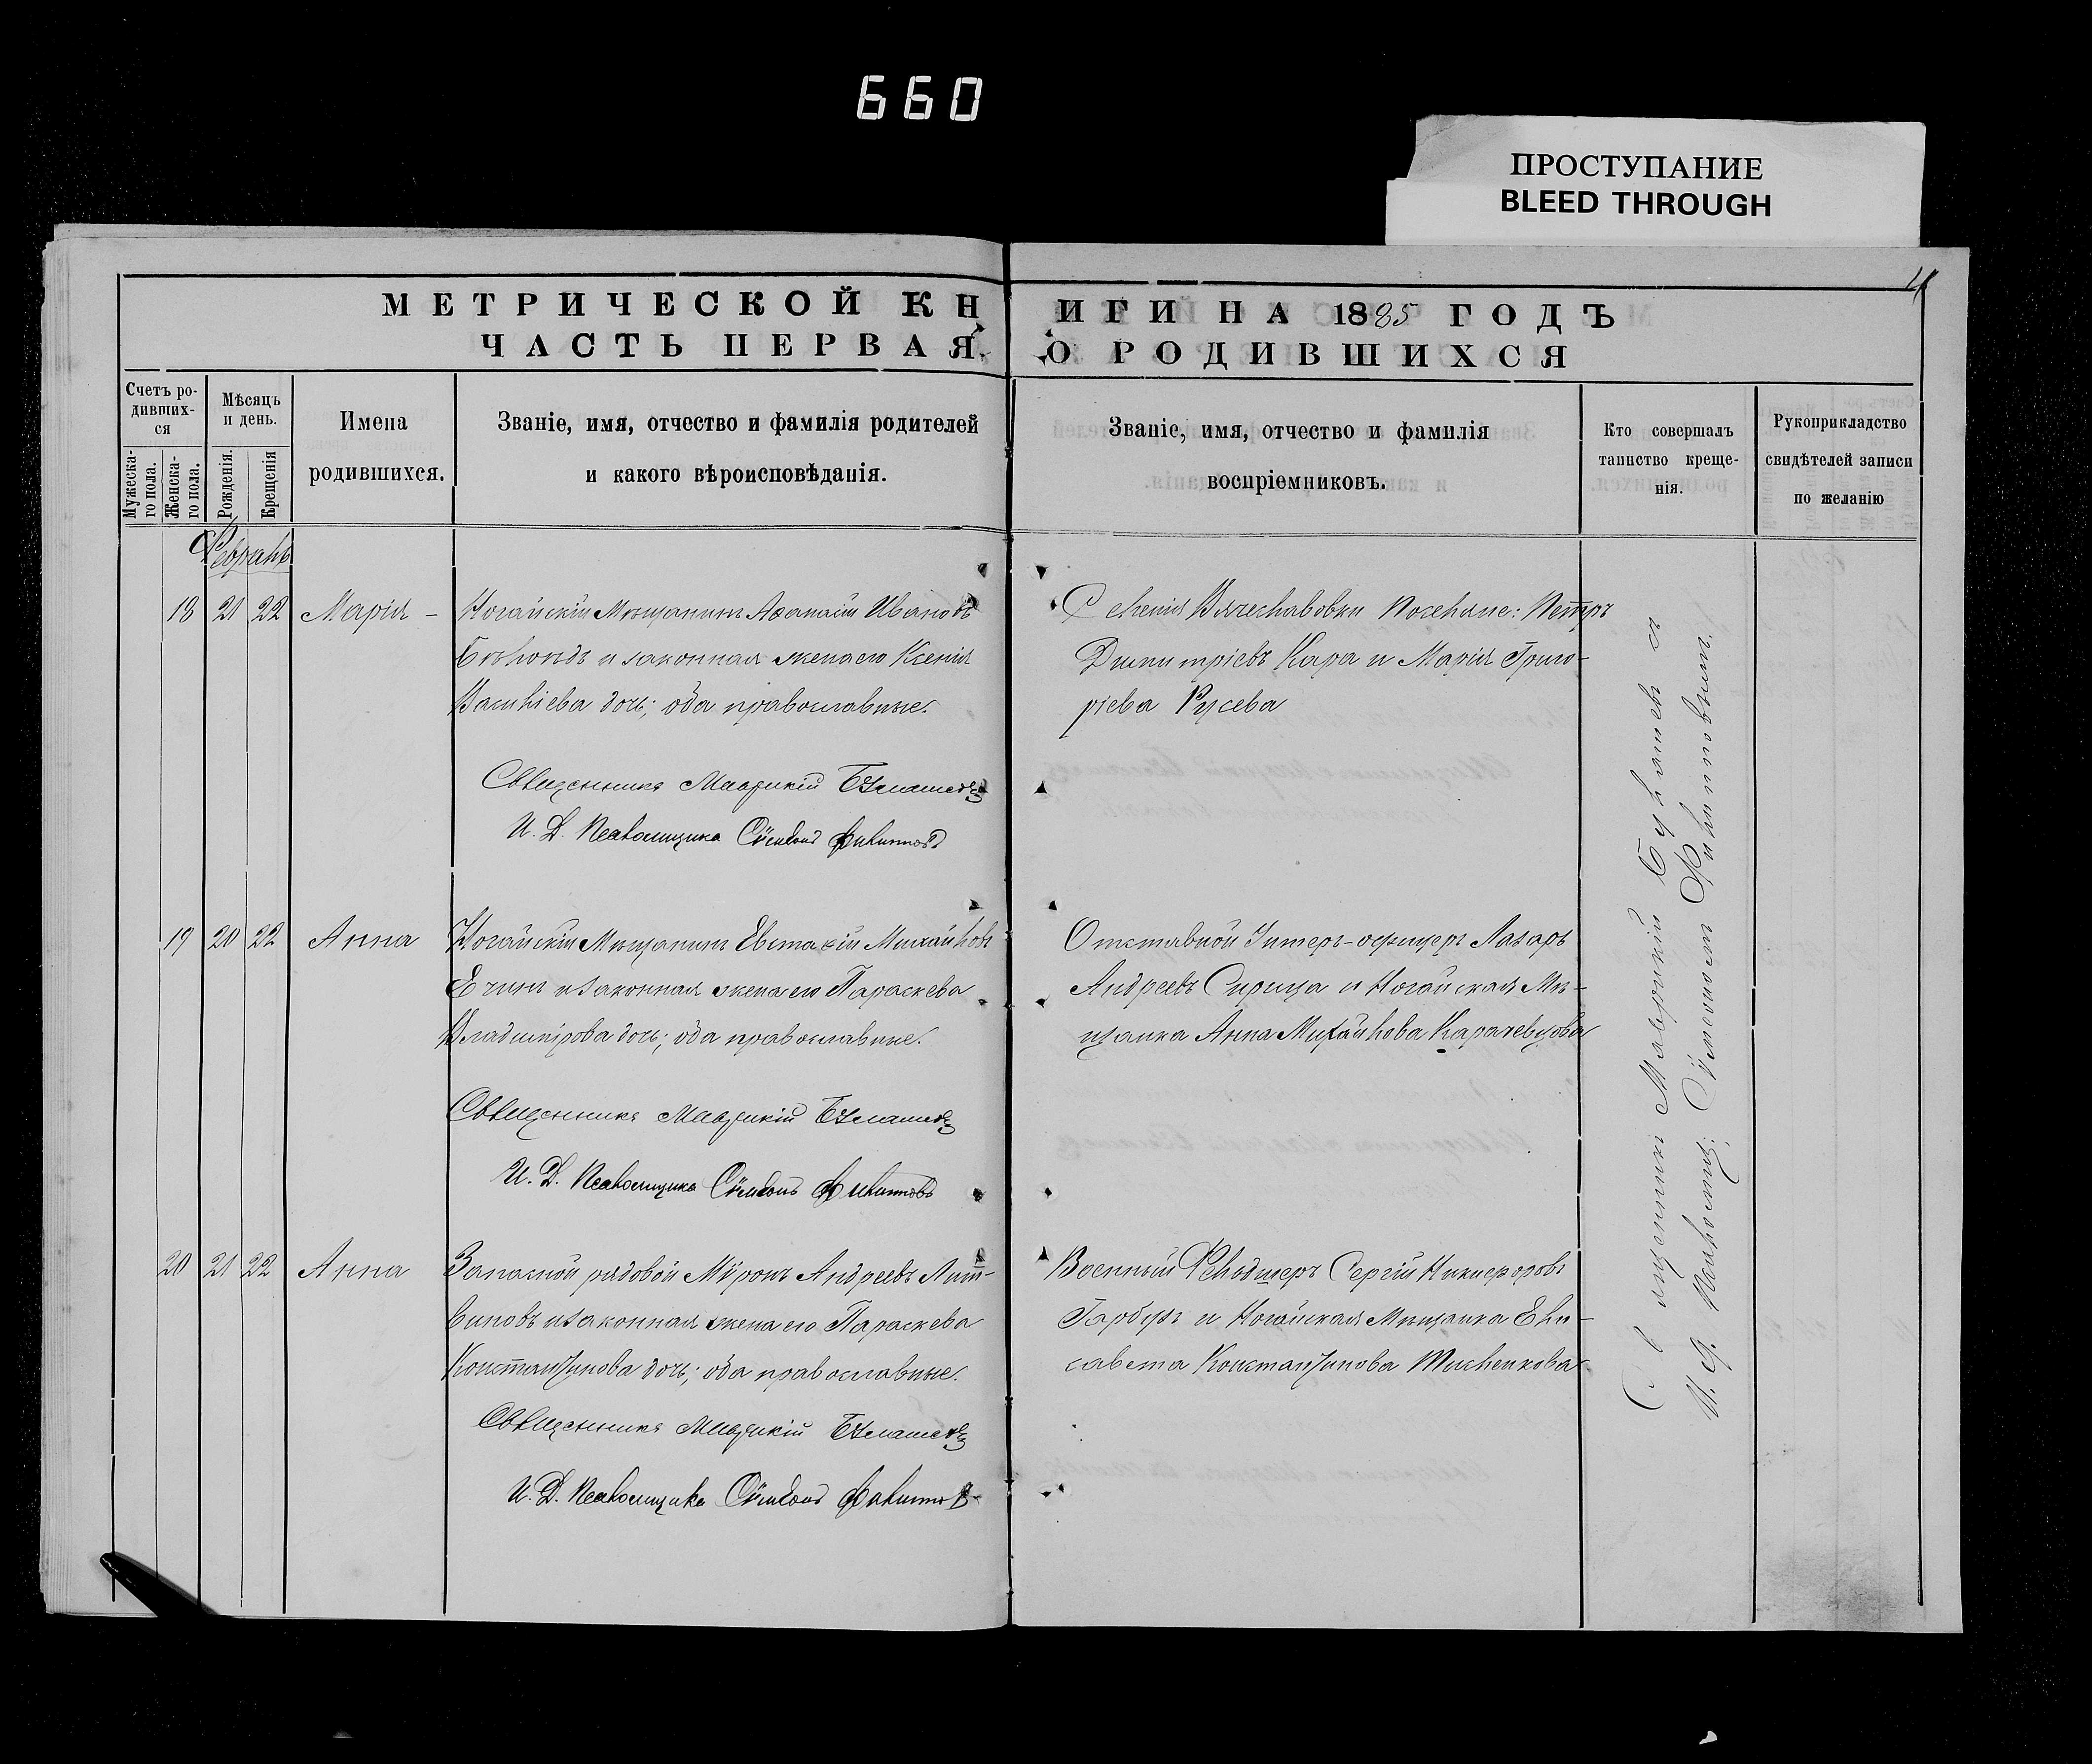 660
ПРОСТУПАНИЕ
BLEED THROUGH
МЕТРИЧЕСКОЙ КНИГИ НА 1885 ГОДЪ
ЧАСТЬ ПЕРВАЯ, О РОДИВШИХСЯ
Счетъ ро-
дивших-
ся
Мужеска-
го пола.
Женска-
го пола.
Мѣсяцъ
и день.
Рожденія.
Крещенія
Имена
родившихся.
Званіе, имя, отчество и фамилія родителей
и какого вѣроисповѣданія.
Званіе, имя, отчество и фамилія
воспріемниковъ.
Кто совершалъ
таинство креще-
нія.
Рукоприкладство
свидѣтелей записи
по желанію
Февраль
18 21 22 Марія -
Ногайскій Мѣщанинъ Аѳанасій Ивановъ
и законная жена его Ксенія
Васильева дочь; оба православные.
Священникъ Маврикій
И. Д. Псаломщика Сѵмеонъ Филипповъ
Селенія Вячеславовки Поселяне: Петръ
Димитріевъ Кара и Марія Григо-
ріева Русева
19 20 22 Анна
Ногайскій Мѣщанинъ Евстафій Михайловъ
Ечинъ и законная жена его Параскева
Владимірова дочь; оба православные.
Священникъ Маврикій
И. Д. Псаломщика Сѵмеонъ Филипповъ
Отставной Унтеръ-офицеръ Лазарь
Андреевъ Сирица и Ногайская Мѣ-
щанка Анна Михайлова Карачевцова
20 21 22 Анна
Запасной рядовой Мѵронъ Андреевъ Лит-
виновъ и законная жена его Параскева
Константинова дочь; оба православные.
Священникъ Маврикій
И. Д. Псаломщика Сѵмеонъ Филипповъ
Военный Фельдшеръ Сергій Никифоровъ
Гарбузъ и Ногайская Мѣщанка Ели-
савета Константинова
Священникъ Маврикій съ
И. д. Псаломщ. Сѵмеономъ Филипповымъ.